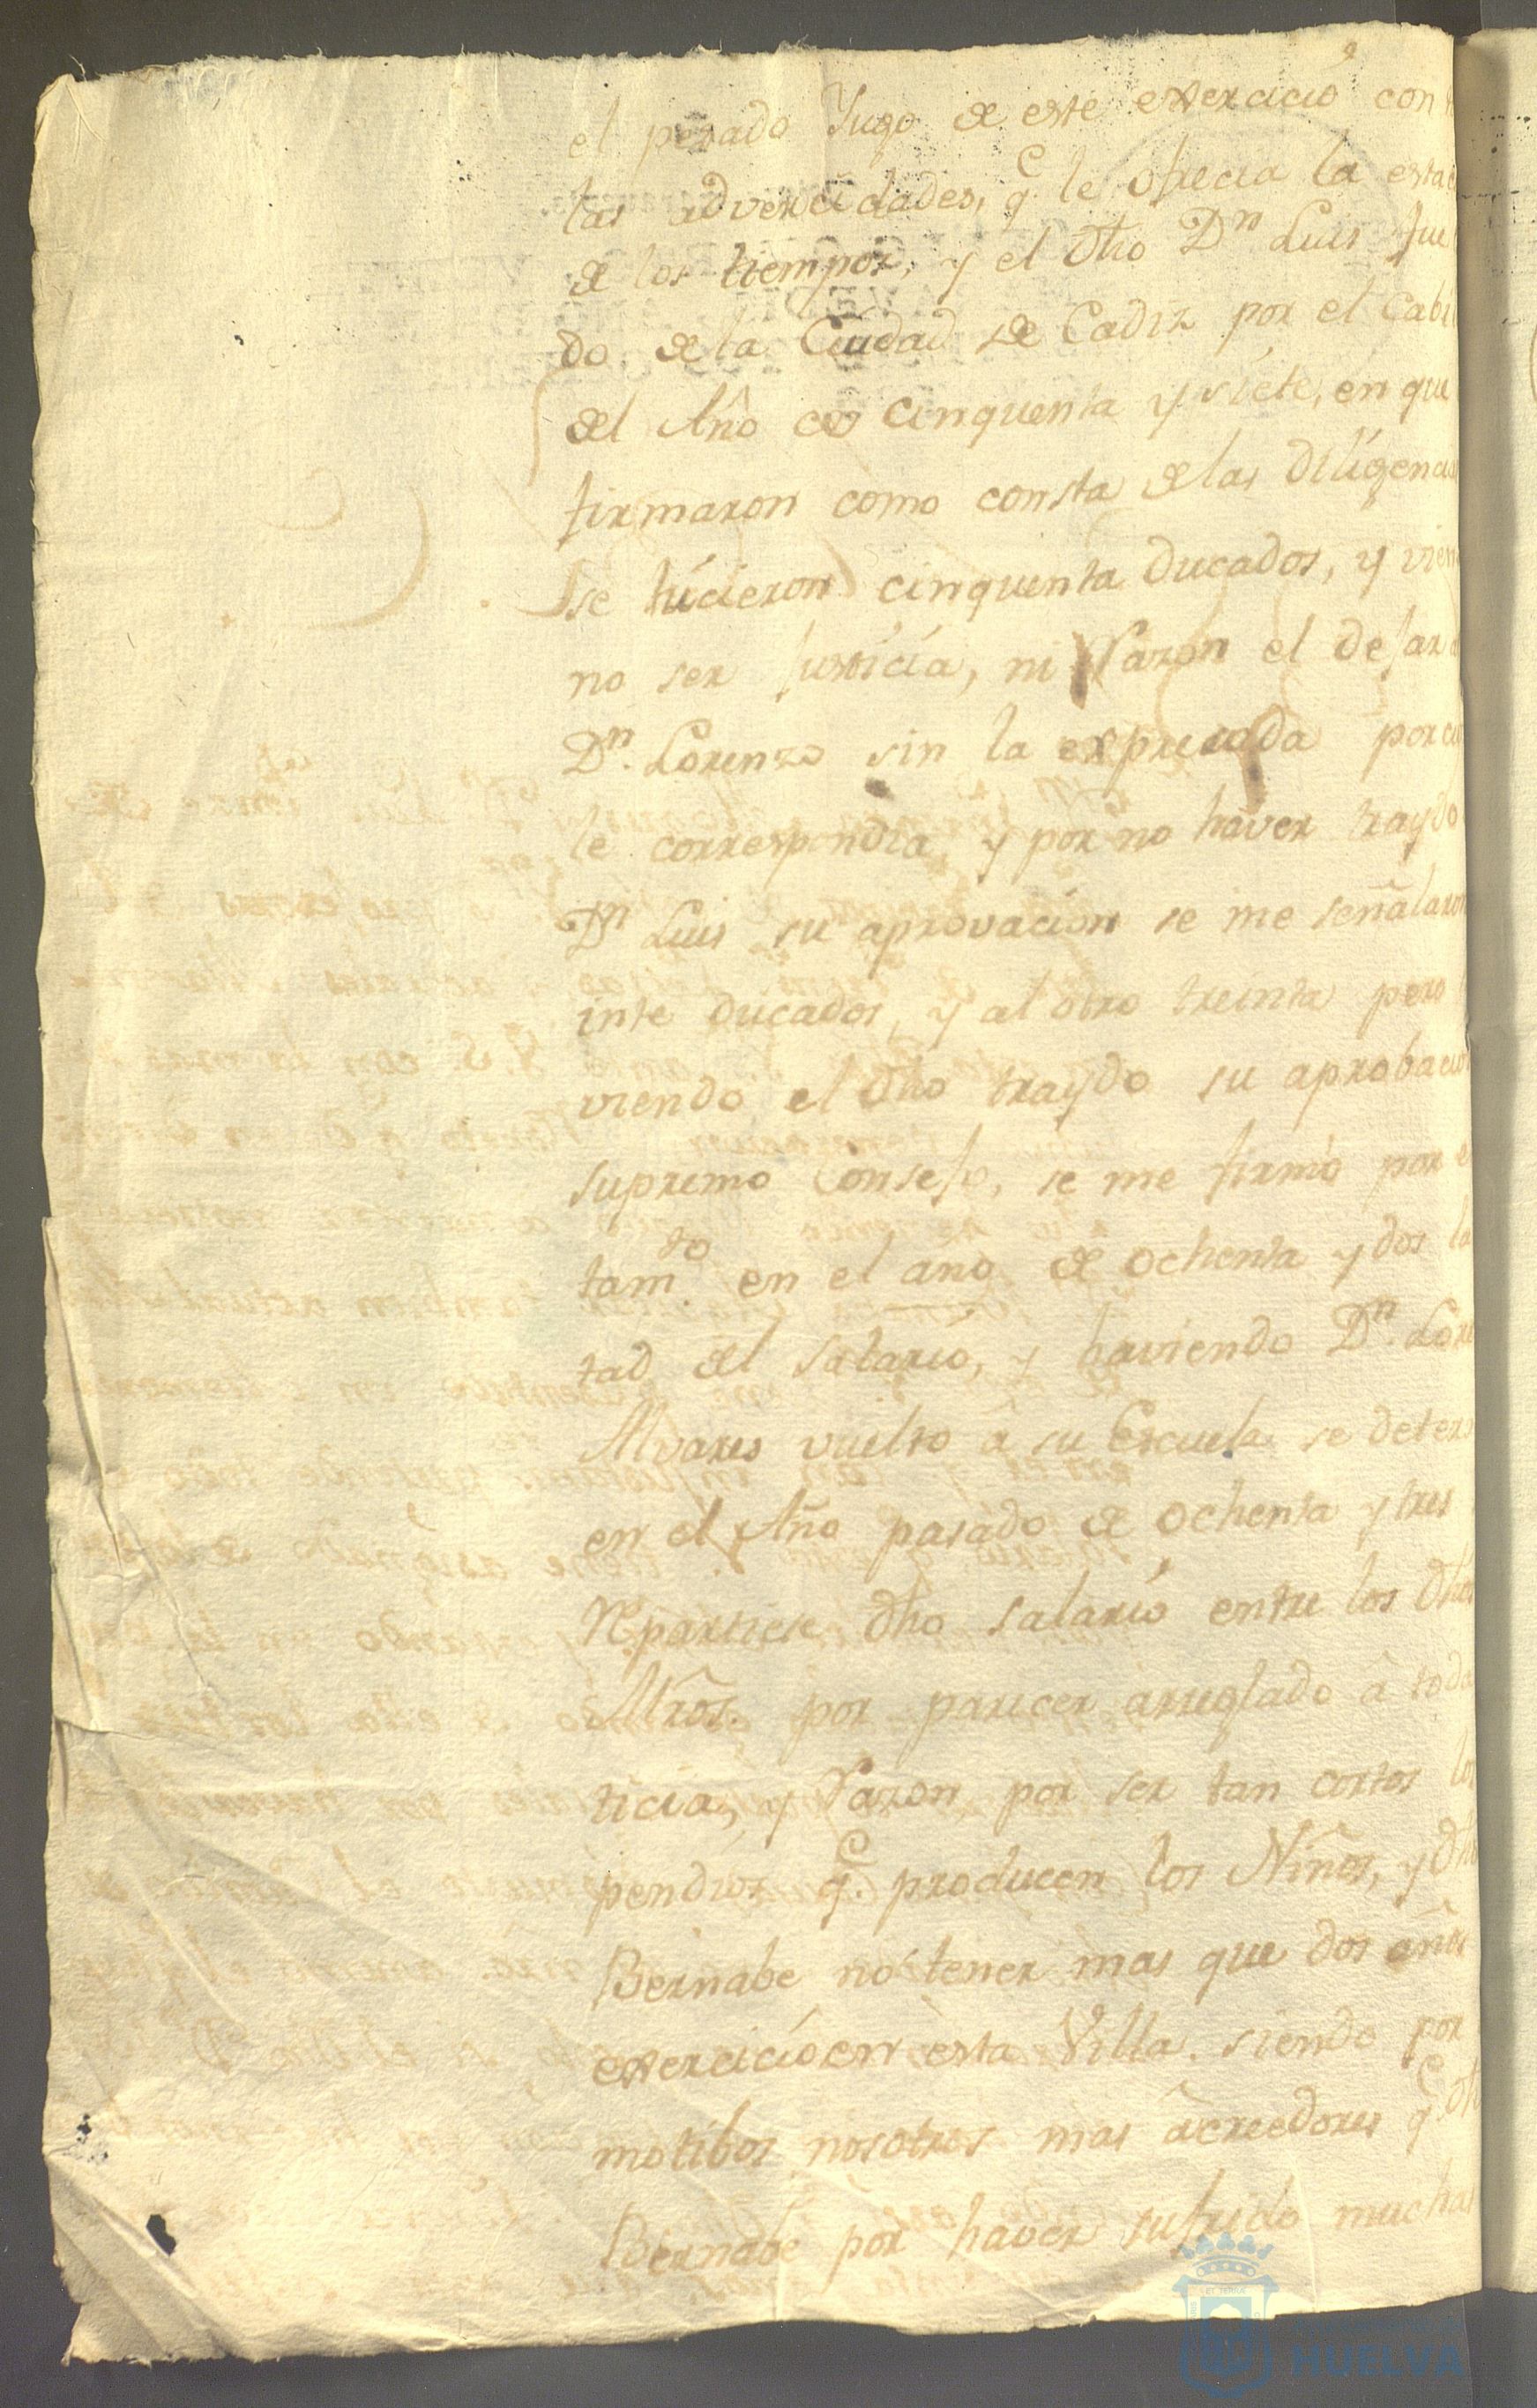 el pesado Yugo de este exercicio con
las advercidades, q.e le ofrecia la esta
de los tiempos, y el dho Dn Luis fue
do de la Ciudad de Cadiz por el Cabil
del Año de cinquenta y siete, en que
firmaron como consta de las diligencias
se hicieron cinquenta ducados, y vien
no ser Justicia, ni Razon el dejar
Dn. Lorenzo sin la expresada porci
le correspondia, y por no haver traydo
Dn Luis su aprovacion se me señalaron
inte ducados, y al otro treinta pero
viendo el dho traydo su aprobacion
supremo Consejo, se me firmó por e
tamto en el año de ochenta y dos la
tad del salario, y haviendo Dn. Lore
Alvares vuelto â su Escuela se deter
en el Año pasado de ochenta y tres
Repartiese dho salario entre los dhos
Mros. por parecer arreglado â toda
ticia, y Razon, por ser tan cortos los
pendios q.e producen los Niños, y dho
Bernabe no tener mas que dos años
exercicio en esta Villa. siendo por
motibos nosotros mas acreedores q.e dho
Bernabe por haver sufrido muchas
HUELVA